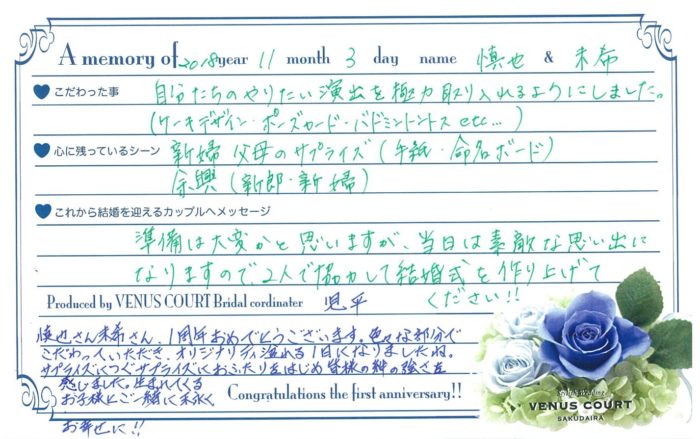 A memory of 2018 year 11 month 3 day name 慎也 & 未希
こだわった事 自分たちのやりたい演出を極力取り入れるようにしました。
(ケーキデザイン・ポーズカード・バドミントントス etc...)
心に残っているシーン 新婦父母のサプライズ(手紙・命名ボード)
余興(新郎・新婦)
これから結婚を迎えるカップルへメッセージ
準備は大変かと思いますが、当日は素敵な思い出に
なりますので2人で協力して結婚式を作り上げて
ください!!
Produced by VENUS COURT Bridal cordinater 児平
慎也さん未希さん、1周年おめでとうございます。色々な部分で
こだわっていただき、オリジナリティ溢れる1日になりましたね。
サプライズにつぐサプライズにおふたりをはじめ皆様の絆の強さを
感じました。生まれてくる
お子様とご一緒に末永く
お幸せに!!
Congratulations the first anniversary!!
VENUS COURT
SAKUDAIRA